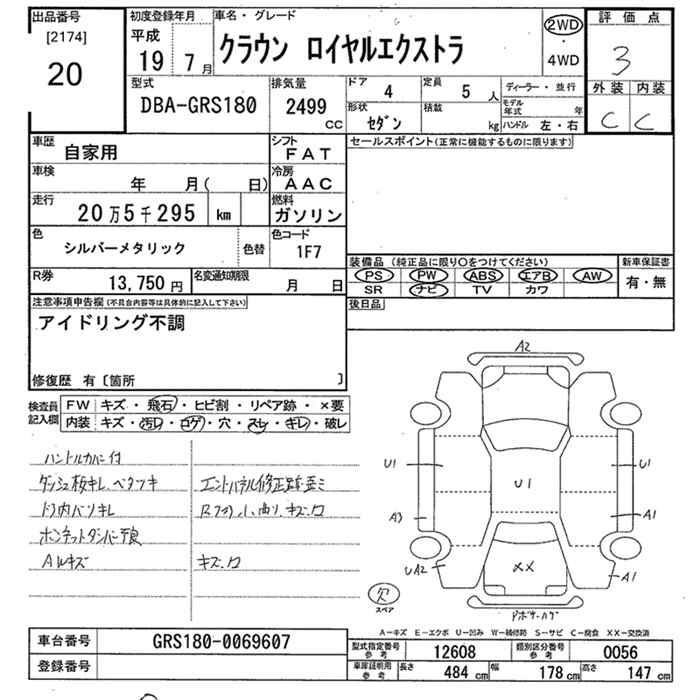 出品番号
[2174]
20
初度登録年月
平成
19 7月
車名・グレード
クラウン ロイヤルエクストラ
2WD
・
4WD
評価点
3
外装 内装
C C
型式
DBA-GRS180
排気量
2499
CC
ドア
4
定員
5 人
ディーラー・並行
モデル年式 年
形状
セダン
積載
kg
ハンドル 左・右
車歴
自家用
シフト
FAT
セールスポイント(正常に機能するものに限ります)
車検
年 月( 日)
冷房
AAC
走行
20万5千295 km
燃料
ガソリン
色
シルバーメタリック
色替
色コード
1F7
装備品 (純正品に限り○をつけてください)
新車保証書
PS PW ABS エアB AW
SR ナビ TV カワ
有・無
R券
13,750円
名変通知期限
月 日
後日品
注意事項申告欄(不具合内容等は具体的に記入して下さい)
アイドリング不調
修復歴 有〔箇所 〕
検査員
記入欄
FW キズ・飛石・ヒビ割・リペア跡・×要
内装 キズ・汚レ・コゲ・穴・スレ・キレ・破レ
ハンドルカバー付
ダッシュ板キレ、ベタツキ
ドア内バリキレ
ボンネットダンパー不良
AWキズ
エンドパネル修正跡歪ミ
キズ、凹
A2
U1
U1
U1
A3
A1
UA2
XX
A1
欠
スペア
A-キズ E-エクボ U-凹み W-補修跡 S-サビ C-腐食 XX-交換済
車台番号
GRS180-0069607
登録番号
型式指定番号
参考
12608
類別区分番号
参考
0056
車庫証明用
参考
長さ
484 cm
幅
178 cm
高さ
147 cm